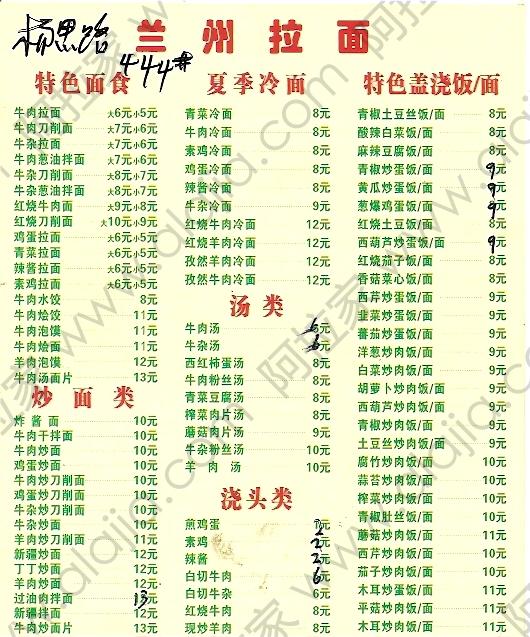 杨思路
444#
兰州拉面
特色面食
牛肉拉面 大6元小5元
牛肉刀削面 大7元小6元
牛杂拉面 大7元小6元
牛肉葱油拌面 大7元小6元
牛杂刀削面 大8元小7元
牛杂葱油拌面 大8元小7元
红烧牛肉面 大9元小8元
红烧刀削面 大10元小9元
鸡蛋拉面 大6元小5元
青菜拉面 大6元小5元
辣酱拉面 大6元小5元
素鸡拉面 大6元小5元
牛肉水饺 8元
牛肉烩饺 11元
牛肉泡馍 11元
牛肉烩面 11元
羊肉泡馍 12元
牛肉汤面片 13元
炒面类
炸酱面 10元
牛肉干拌面 10元
牛肉炒面 10元
鸡蛋炒面 10元
牛肉炒刀削面 10元
鸡蛋炒刀削面 10元
牛杂炒刀削面 10元
牛杂炒面 10元
羊肉炒刀削面 11元
新疆炒面 12元
丁丁炒面 12元
羊肉炒面 12元
过油肉拌面 13元
新疆拌面 12元
牛肉炒面片 13元
夏季冷面
青菜冷面 8元
牛肉冷面 8元
素鸡冷面 8元
鸡蛋冷面 8元
辣酱冷面 8元
牛杂冷面 9元
红烧牛肉冷面 12元
红烧羊肉冷面 12元
孜然羊肉冷面 12元
孜然牛肉冷面 12元
汤类
牛肉汤 6元
牛杂汤 6元
西红柿蛋汤 8元
牛肉粉丝汤 8元
青菜豆腐汤 8元
榨菜肉片汤 8元
蘑菇肉片汤 9元
牛杂粉丝汤 10元
羊肉汤 10元
浇头类
煎鸡蛋 2元
素鸡 2元
辣酱 2元
白切牛肉 6元
白切牛杂 6元
红烧牛肉 8元
现炒羊肉 8元
特色盖浇饭/面
青椒土豆丝饭/面 8元
酸辣白菜饭/面 8元
麻辣豆腐饭/面 8元
青椒炒蛋饭/面 9元
黄瓜炒蛋饭/面 9元
葱爆鸡蛋饭/面 9元
红烧土豆饭/面 8元
西葫芦炒蛋饭/面 9元
红烧茄子饭/面 8元
香菇菜心饭/面 8元
西芹炒蛋饭/面 9元
韭菜炒蛋饭/面 9元
蕃茄炒蛋饭/面 9元
洋葱炒肉饭/面 9元
白菜炒肉饭/面 9元
胡萝卜炒肉饭/面 9元
西葫芦炒肉饭/面 9元
青椒炒肉饭/面 9元
土豆丝炒肉饭/面 9元
腐竹炒肉饭/面 10元
蒜苔炒肉饭/面 10元
榨菜炒肉饭/面 10元
青椒肚丝饭/面 10元
蘑菇炒肉饭/面 11元
西芹炒肉饭/面 10元
茄子炒肉饭/面 10元
木耳炒蛋饭/面 11元
平菇炒肉饭/面 11元
木耳炒肉饭/面 11元